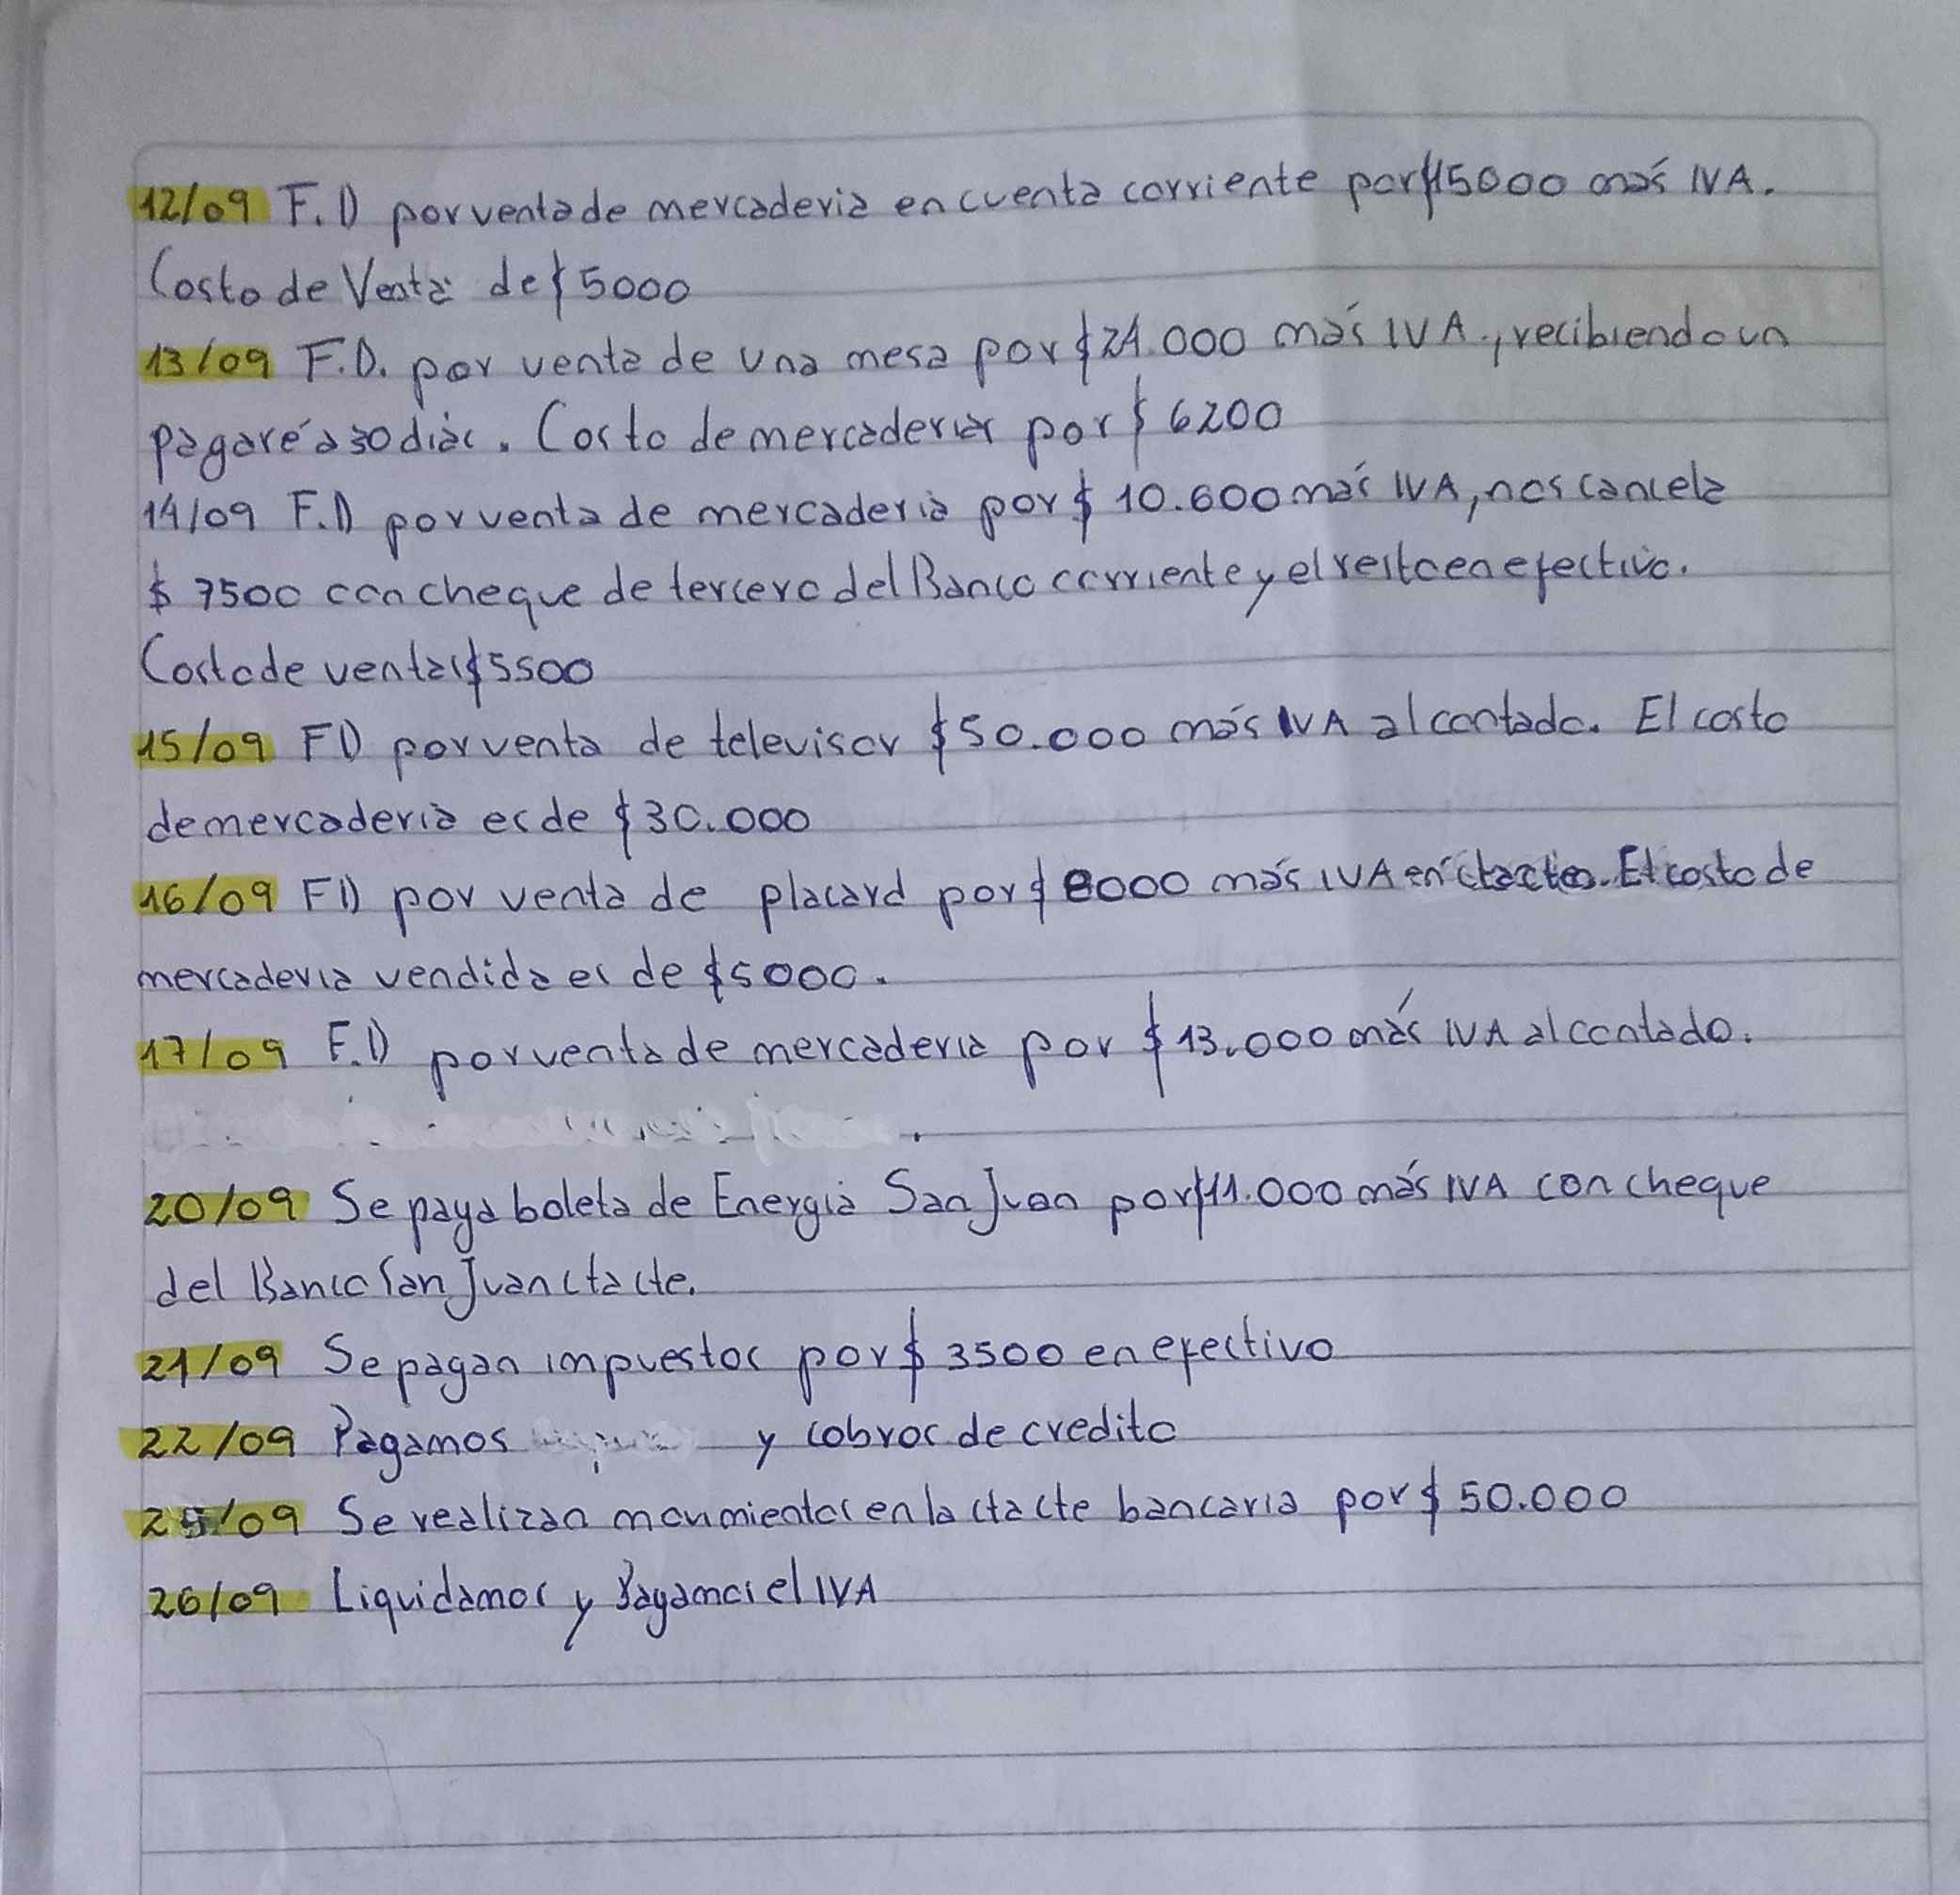 12/09 F.D por venta de mercaderia en cuenta corriente por $15000 más IVA.
Costo de Venta de $5000
13/09 F.D. por venta de una mesa por $21.000 más IVA., recibiendo un
pagaré a 30 dias. Costo de mercaderias por $ 6200
14/09 F.D por venta de mercaderia por $ 10.600 más IVA, nos cancela
$ 7500 con cheque de tercero del Banco corriente y el resto en efectivo.
Costo de ventas $5500
15/09 FD por venta de televisor $50.000 más IVA al contado. El costo
de mercaderia es de $30.000
16/09 FD por venta de placard por $8000 más IVA en cta cte. El costo de
mercaderia vendida es de $5000.
17/09 F.D por venta de mercaderia por $13.000 más IVA al contado.
20/09 Se paga boleta de Energia San Juan por $11.000 más IVA con cheque
del Banco San Juan cta cte.
21/09 Se pagan impuestos por $ 3500 en efectivo
22/09 Pagamos y cobros de credito
25/09 Se realizan movimientos en la cta cte bancaria por $ 50.000
26/09 Liquidamos y Pagamos el IVA